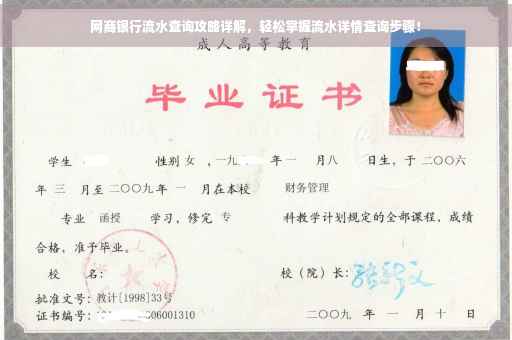 网商银行流水查询攻略详解，轻松掌握流水详情查询步骤！
成人高等教育
毕业证书
学生 性别 女 ，一九 年一 月八 日生，于二〇〇六
年 三 月至二〇〇九年 一 月在本校 财务管理
专业 函授 学习，修完 专 科教学计划规定的全部课程，成绩
合格，准予毕业。
校 名： 校（院）长：
批准文号：教计[1998]33号
证书编号： 06001310 二〇〇九 年 一 月 十 日